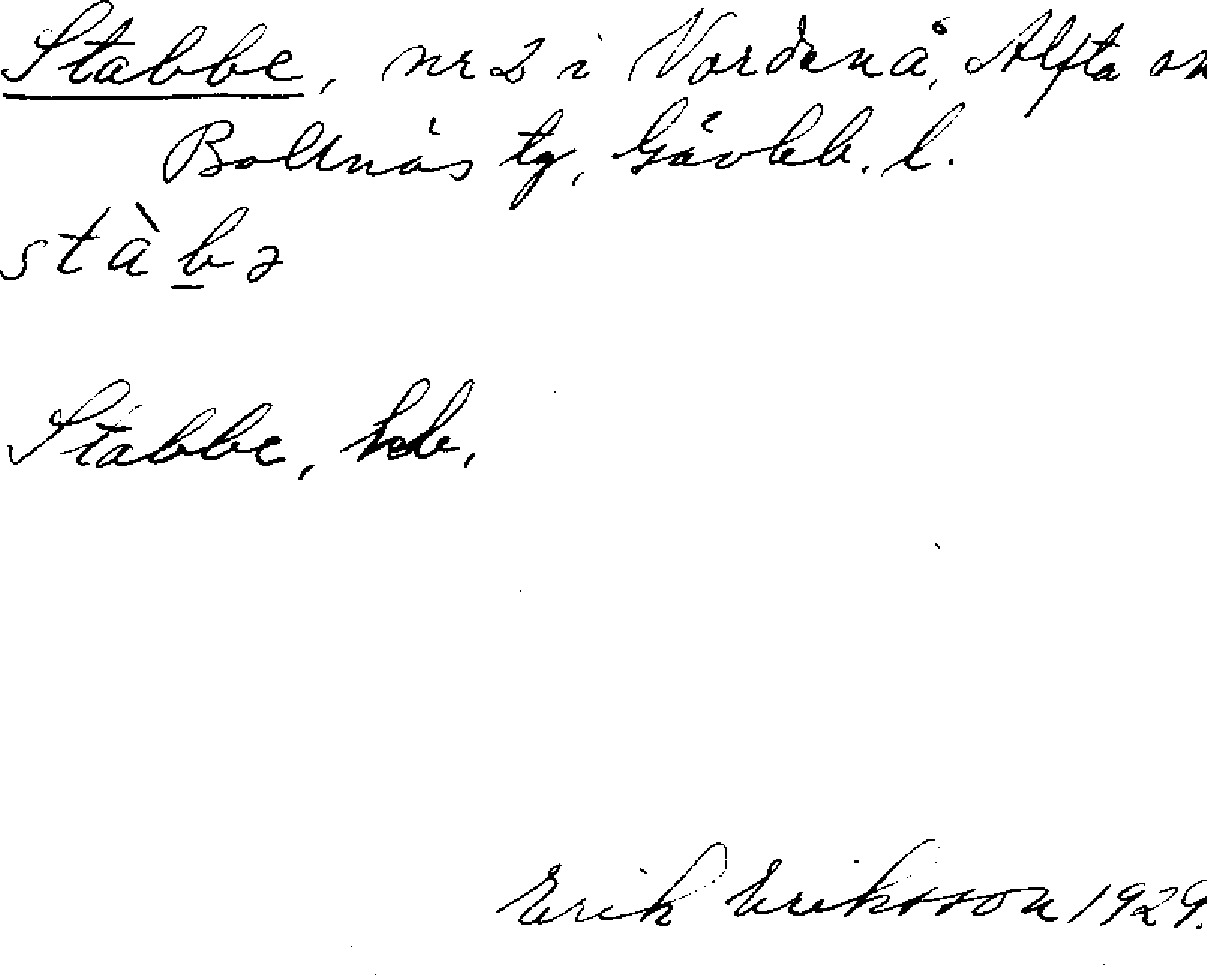 Stabbe, nr 2 i Nordanå, Alfta sn
Bollnäs tg, Gävleb. l.
stàbə
Stabbe, hdb.
Erik Eriksson 1929.